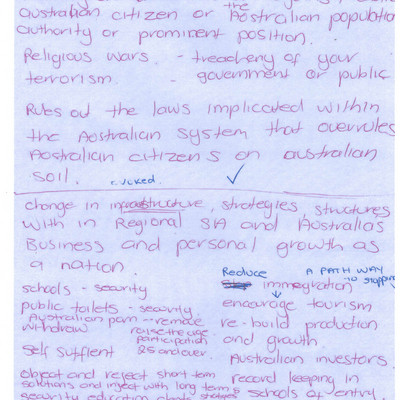 australian citizen or the Australian population
authority or prominent position.
Religious wars. - treacheny of your
terrorism. - government or public
Rules out the laws implicated within
the Australian system that overrules
Australian citizens on australian
soil. evoked. ✓
change in infrastructure, strategies, structures
with in Regional SA and Australias
Business and personal growth as
a nation.
Reduce A PATH WAY to stopping
schools - security immegration
public toilets - security encourage tourism
Australian porn -- remove re-build production
withdraw raise the age participation and growth.
self suffient 25 and over. Australian investors.
object and reject short term record keeping in
solutions and inject with long term schools of entry.
security education